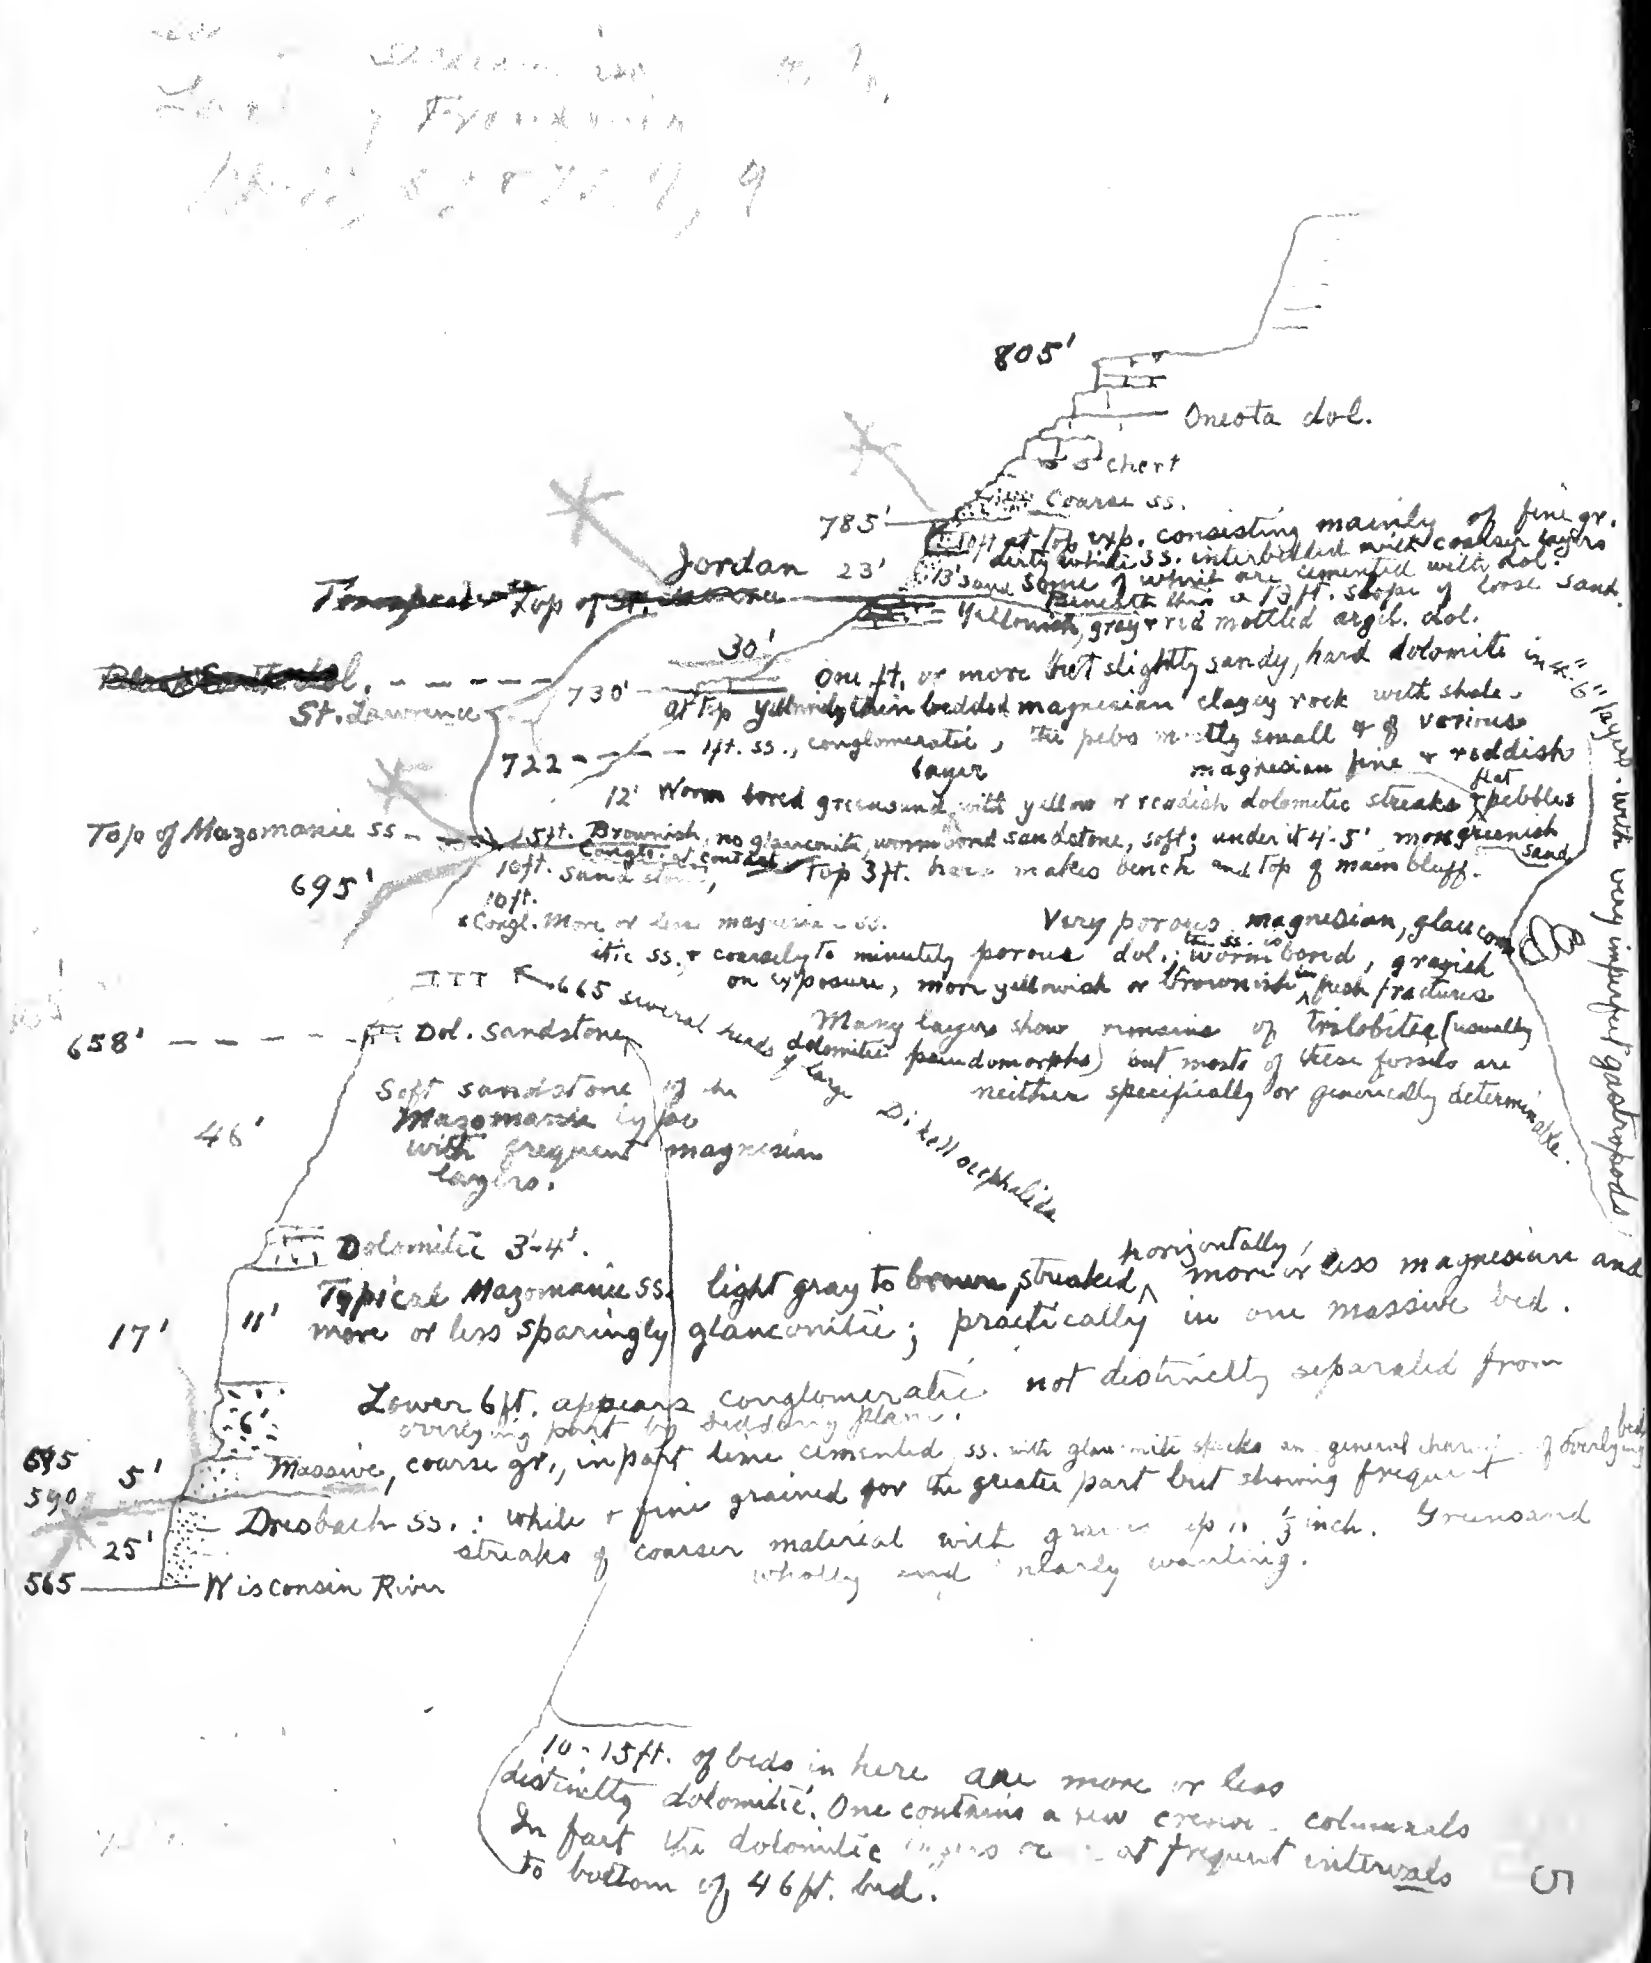 805'
Oneota dol.
chert
Coarse ss.
785'
10ft at top exp. consisting mainly of fine gr.
dirty white ss. interbedded with coarser layers
Jordan 23' 13' sand some of which are cemented with dol.
Beneath this a 13 ft. slope of loose sand.
Top of St. Lawrence
Yellowish, gray & red mottled argil. dol.
30'
One ft. or more thet slightly sandy, hard dolomite in 4"-6" layers. with very imperfect gastropods
dol.
St. Lawrence
730'
at top thin bedded magnesian clayey rock with shale
722 1 ft. ss., conglomeratic, the pebs mostly small & of various
layer magnesian fine & reddish
12' Worm bored greensand with yellow or reddish dolomitic streaks & flat pebbles
Top of Mazomanie ss
1.5ft. Brownish, no glauconite, worm bored sandstone, soft; under it 4'-5' more greenish sand
Congl. at contact
695' 10ft. sandstone, Top 3 ft. hard makes bench and top of main bluff.
10 ft.
Congl. More or less magnesian ss.
Very porous magnesian, glaucon
itic ss. & coarsely to minutely porous dol.; the ss. is worm bored, grayish
on exposure, more yellowish or brownish in fresh fractures
665 several heads of large Dikellocephalids
Many layers show remains of trilobites (usually
dolomitic pseudomorphs) but most of these fossils are
neither specifically or generically determinable.
658' Dol. Sandstone
46' Soft sandstone of the
Mazomanie type
with frequent magnesian
layers.
Dolomitic 3'-4'.
17' 11' Typical Mazomanie ss. light gray to brown, streaked horizontally, more or less magnesian and
more or less sparingly glauconitic; practically in one massive bed.
6' Lower 6ft. appears conglomeratic not distinctly separated from
overlying part by bedding plane.
695
5' Massive, coarse gr., in part lime cemented ss. with glauconite specks and general character of overlying bed
590
25' Dresbach ss.: white & fine grained for the greater part but showing frequent
streaks of coarser material with grains up to 1/3 inch. Greensand
wholly and nearly wanting.
565 Wisconsin River
10-15ft. of beds in here are more or less
distinctly dolomitic. One contains a few columnals
In fact the dolomitic at frequent intervals
to bottom of 46 ft. bed.
5